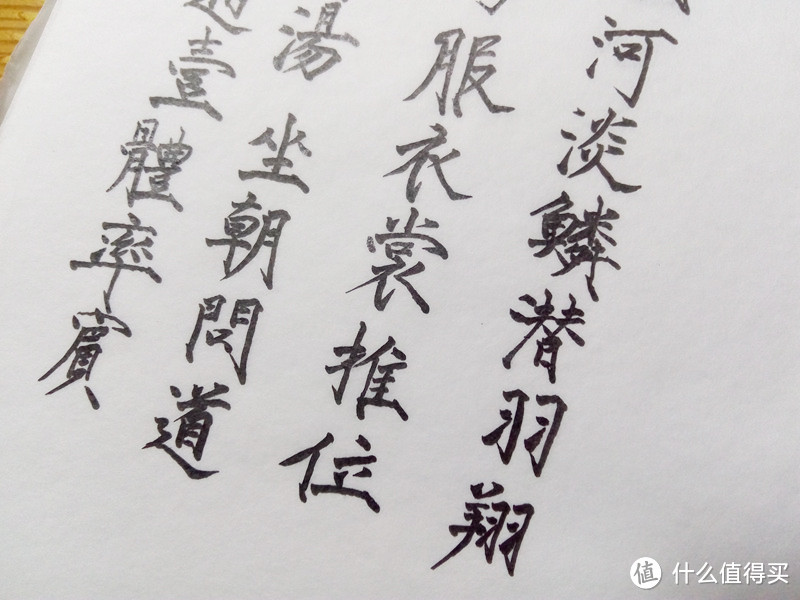 河淡鱗潜羽翔
服衣裳推位
湯坐朝問道
壹體率賓
值 什么值得买